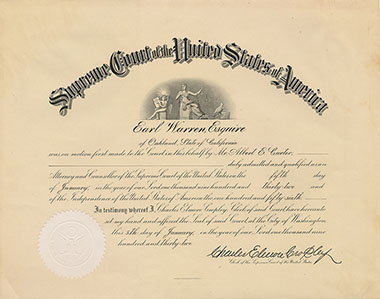 Supreme Court of the United States of America
Earl Warren, Esquire
of Oakland, State of California
was on motion first made to the Court in this behalf by Mr. Albert E. Carter
duly admitted and qualified as an
Attorney and Counsellor of the Supreme Court of the United States on the fifth day
of January, in the year of our Lord one thousand nine hundred and thirty-two and
of the Independence of the United States of America the one hundred and fifty-sixth.
In testimony whereof I, Charles Elmore Cropley, Clerk of said Court have hereunto
set my hand and affixed the Seal of said Court at the City of Washington
this 5th day of January, in the year of our Lord one thousand nine
hundred and thirty-two
Charles Elmore Cropley
Clerk of the Supreme Court of the United States